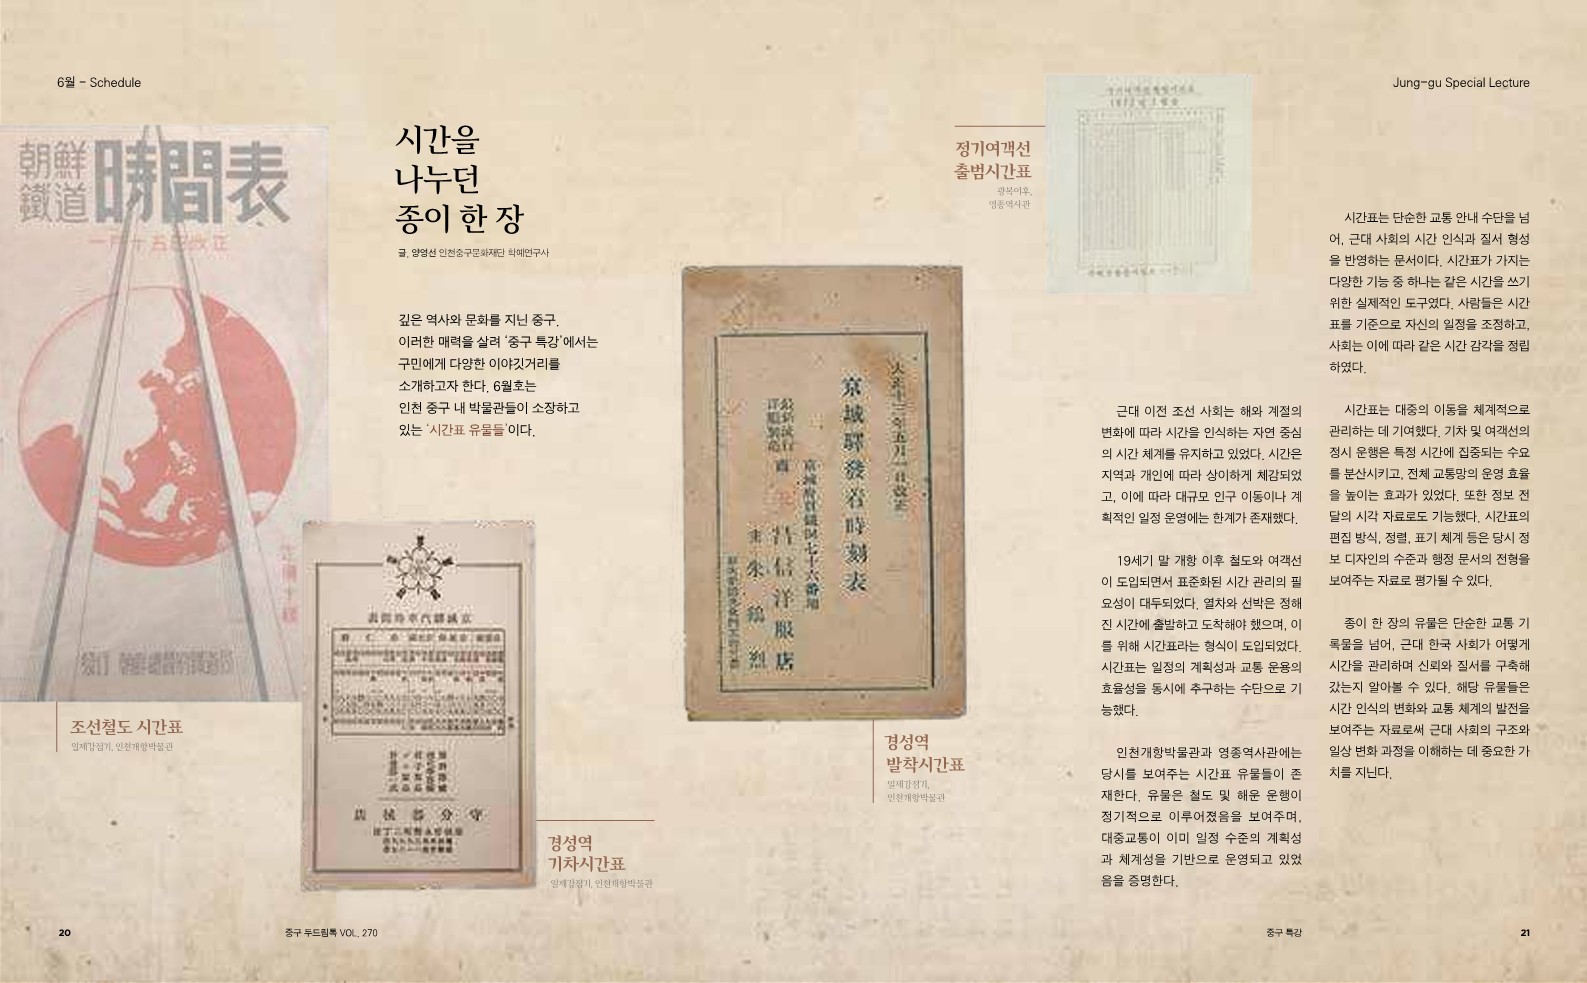 6월 - Schedule
Jung-gu Special Lecture
朝鮮
鐵道
時間表
一月十五日改正
시간을
나누던
종이 한 장
글. 양영선 인천중구문화재단 학예연구사
깊은 역사와 문화를 지닌 중구.
이러한 매력을 살려 '중구 특강'에서는
구민에게 다양한 이야깃거리를
소개하고자 한다. 6월호는
인천 중구 내 박물관들이 소장하고
있는 '시간표 유물들'이다.
조선철도 시간표
일제강점기, 인천개항박물관
京城驛汽車時間表
守分器械店
경성역
기차시간표
일제강점기, 인천개항박물관
大正十二年五月一日改正
京城驛發着時刻表
最新流行
洋服製造
商
昌信洋服店
主 朱鶴烈
경성역
발착시간표
일제강점기,
인천개항박물관
정기여객선
출범시간표
광복이후,
영종역사관
근대 이전 조선 사회는 해와 계절의
변화에 따라 시간을 인식하는 자연 중심
의 시간 체계를 유지하고 있었다. 시간은
지역과 개인에 따라 상이하게 체감되었
고, 이에 따라 대규모 인구 이동이나 계
획적인 일정 운영에는 한계가 존재했다.
19세기 말 개항 이후 철도와 여객선
이 도입되면서 표준화된 시간 관리의 필
요성이 대두되었다. 열차와 선박은 정해
진 시간에 출발하고 도착해야 했으며, 이
를 위해 시간표라는 형식이 도입되었다.
시간표는 일정의 계획성과 교통 운용의
효율성을 동시에 추구하는 수단으로 기
능했다.
인천개항박물관과 영종역사관에는
당시를 보여주는 시간표 유물들이 존
재한다. 유물은 철도 및 해운 운행이
정기적으로 이루어졌음을 보여주며,
대중교통이 이미 일정 수준의 계획성
과 체계성을 기반으로 운영되고 있었
음을 증명한다.
시간표는 단순한 교통 안내 수단을 넘
어, 근대 사회의 시간 인식과 질서 형성
을 반영하는 문서이다. 시간표가 가지는
다양한 기능 중 하나는 같은 시간을 쓰기
위한 실제적인 도구였다. 사람들은 시간
표를 기준으로 자신의 일정을 조정하고,
사회는 이에 따라 같은 시간 감각을 정립
하였다.
시간표는 대중의 이동을 체계적으로
관리하는 데 기여했다. 기차 및 여객선의
정시 운행은 특정 시간에 집중되는 수요
를 분산시키고, 전체 교통망의 운영 효율
을 높이는 효과가 있었다. 또한 정보 전
달의 시각 자료로도 기능했다. 시간표의
편집 방식, 정렬, 표기 체계 등은 당시 정
보 디자인의 수준과 행정 문서의 전형을
보여주는 자료로 평가될 수 있다.
종이 한 장의 유물은 단순한 교통 기
록물을 넘어, 근대 한국 사회가 어떻게
시간을 관리하며 신뢰와 질서를 구축해
갔는지 알아볼 수 있다. 해당 유물들은
시간 인식의 변화와 교통 체계의 발전을
보여주는 자료로써 근대 사회의 구조와
일상 변화 과정을 이해하는 데 중요한 가
치를 지닌다.
20
중구 두드림톡 VOL. 270
중구 특강
21